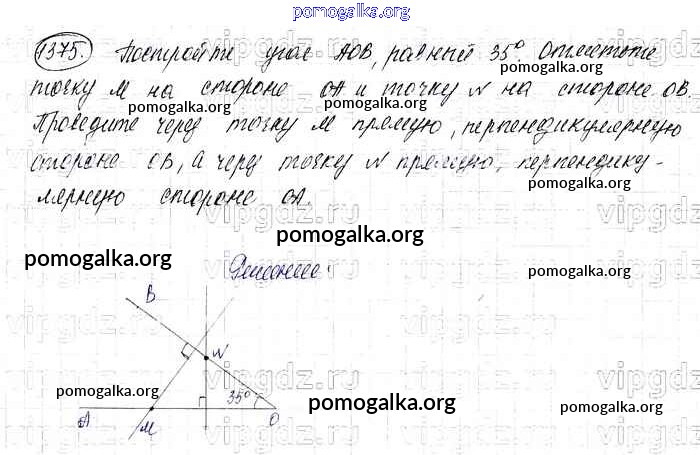 pomogalka.org
1375. Постройте угол AOB, равный 35°. Отметьте
pomogalka.org
точку M на стороне OA и точку N на стороне OB.
pomogalka.org pomogalka.org
Проведите через точку M прямую, перпендикулярную
стороне OB, а через точку N прямую, перпендику-
pomogalka.org
лярную стороне OA.
vipgdz.ru
pomogalka.org
pomogalka.org Решение: pomogalka.org
B
N
pomogalka.org 35° pomogalka.org pomogalka.org
A M O